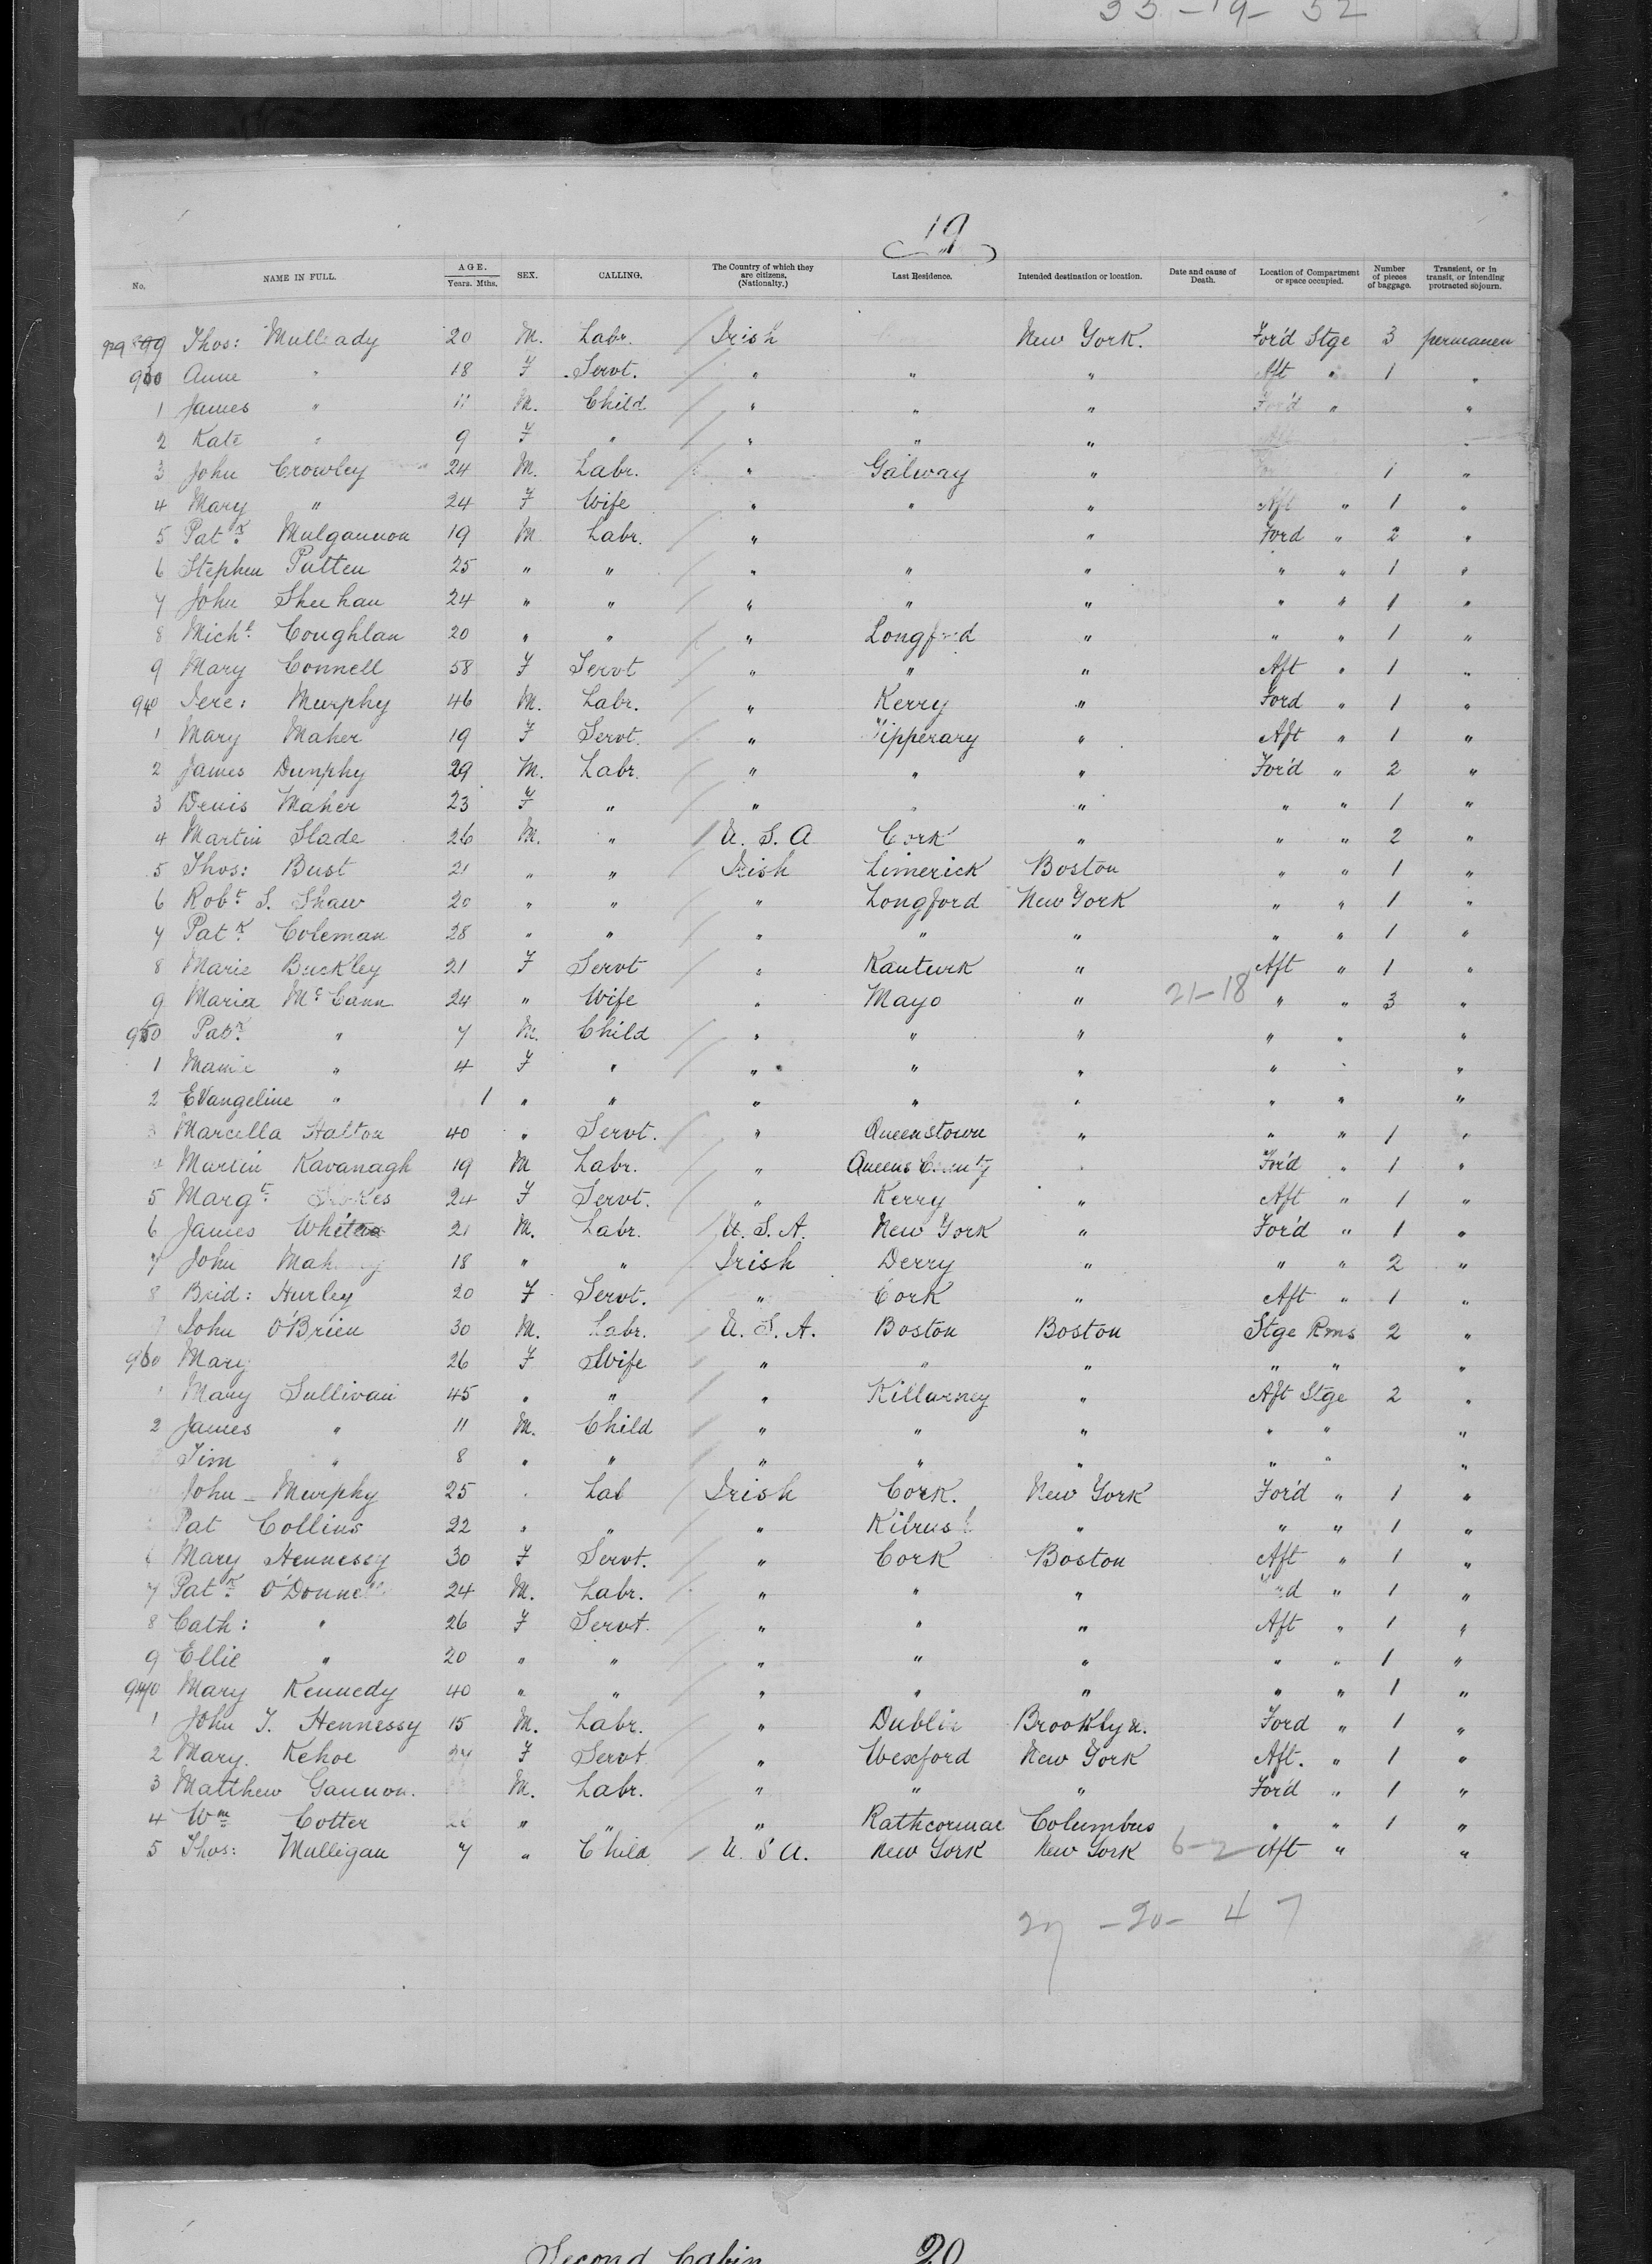 33 - 19 - 52
19
No. NAME IN FULL. AGE. Years. Mths. SEX. CALLING. The Country of which they are citizens. (Nationality.) Last Residence. Intended destination or location. Date and cause of Death. Location of Compartment or space occupied. Number of pieces of baggage. Transient, or in transit, or intending protracted sojourn.
Thos: Mulleady 20 M. Labr. / Irish New York. For'd Stge 3 permanen
Anne " 18 F Servt. / " " " Aft " 1 "
1 James " 11 M. Child / " " " For'd " "
2 Kate " 9 F " / " " " Aft "
3 John Crowley 24 M. Labr. / " Galway " 1 "
4 Mary " 24 F Wife " " " Aft " 1 "
5 Patk. Mulgannon 19 M Labr. / " " Ford " 2 "
6 Stephen Patten 25 " " / " " " " " 1 "
7 John Sheehan 24 " " / " " " " " 1 "
8 Michl. Coughlan 20 " " / " Longford " " " 1 "
9 Mary Connell 58 F Servt / " " " Aft " 1 "
940 Jere: Murphy 46 M. Labr. / " Kerry " Ford " 1 "
1 Mary Maher 19 F Servt. / " Tipperary " Aft " 1 "
2 James Dunphy 29 M. Labr. / " " " For'd " 2 "
3 Denis Maher 23 F " / " " " " " 1 "
4 Martin Slade 26 M. " / U. S. A Cork " " " 2 "
5 Thos: Bust 21 " " Irish Limerick Boston " " 1 "
6 Robt S. Shaw 20 " " " Longford New York " " 1 "
7 Patk. Coleman 28 " " / " " " " " 1 "
8 Marie Buckley 21 F Servt / " Kanturk " Aft " 1 "
9 Maria McCann 24 " Wife " Mayo " 21-18 " " 3 "
950 Patk. " 7 M. Child / " " " " " "
1 Mamie " 4 F " / " " " " " "
2 Evangeline " 1 " " " " " " " "
Marcella Halton 40 " Servt. / " Queenstown " " " 1 "
Martin Kavanagh 19 M Labr. / " Queens County " For'd " 1 "
5 Margt. 24 F Servt. / " Kerry " Aft " 1 "
6 James White 21 M. Labr. / U. S. A. New York " For'd " 1 "
7 John 18 " " Irish Derry " " " 2 "
8 Brid: Hurley 20 F Servt. / " Cork " Aft " 1 "
John O'Brien 30 M. Labr. / U. S. A. Boston Boston Stge Rms 2 "
960 Mary 26 F Wife / " " " " " "
1 Mary Sullivan 45 " " / " Killarney " Aft Stge 2 "
2 James " 11 M. Child / " " " " " "
Tim " 8 " " / " " " " " "
John - Murphy 25 " Lab / Irish Cork. New York For'd " 1 "
Pat Collins 22 " " / " Kilrush " " " 1 "
6 Mary Hennessy 30 F Servt. / " Cork Boston Aft " 1 "
7 Patk. O'Donnell 24 M. Labr. / " " " Ford " 1 "
8 Cath: " 26 F Servt. / " " " Aft " 1 "
9 Ellie " 20 " " / " " " " " 1 "
970 Mary Kennedy 40 " " / " " " " " 1 "
1 John J. Hennessy 15 M. Labr. / " Dublin Brooklyn. Ford " 1 "
2 Mary. Kehoe F Servt / " Wexford New York Aft. " 1 "
3 Matthew Gannon. M. Labr. / " " " For'd " 1 "
4 Wm Cotter " " / " Rathcormac Columbus " " 1 "
5 Thos: Mulligan 7 " Child / U. S A. New York New York 6-2 Aft " "
27 - 20 - 47
Second Cabin 20